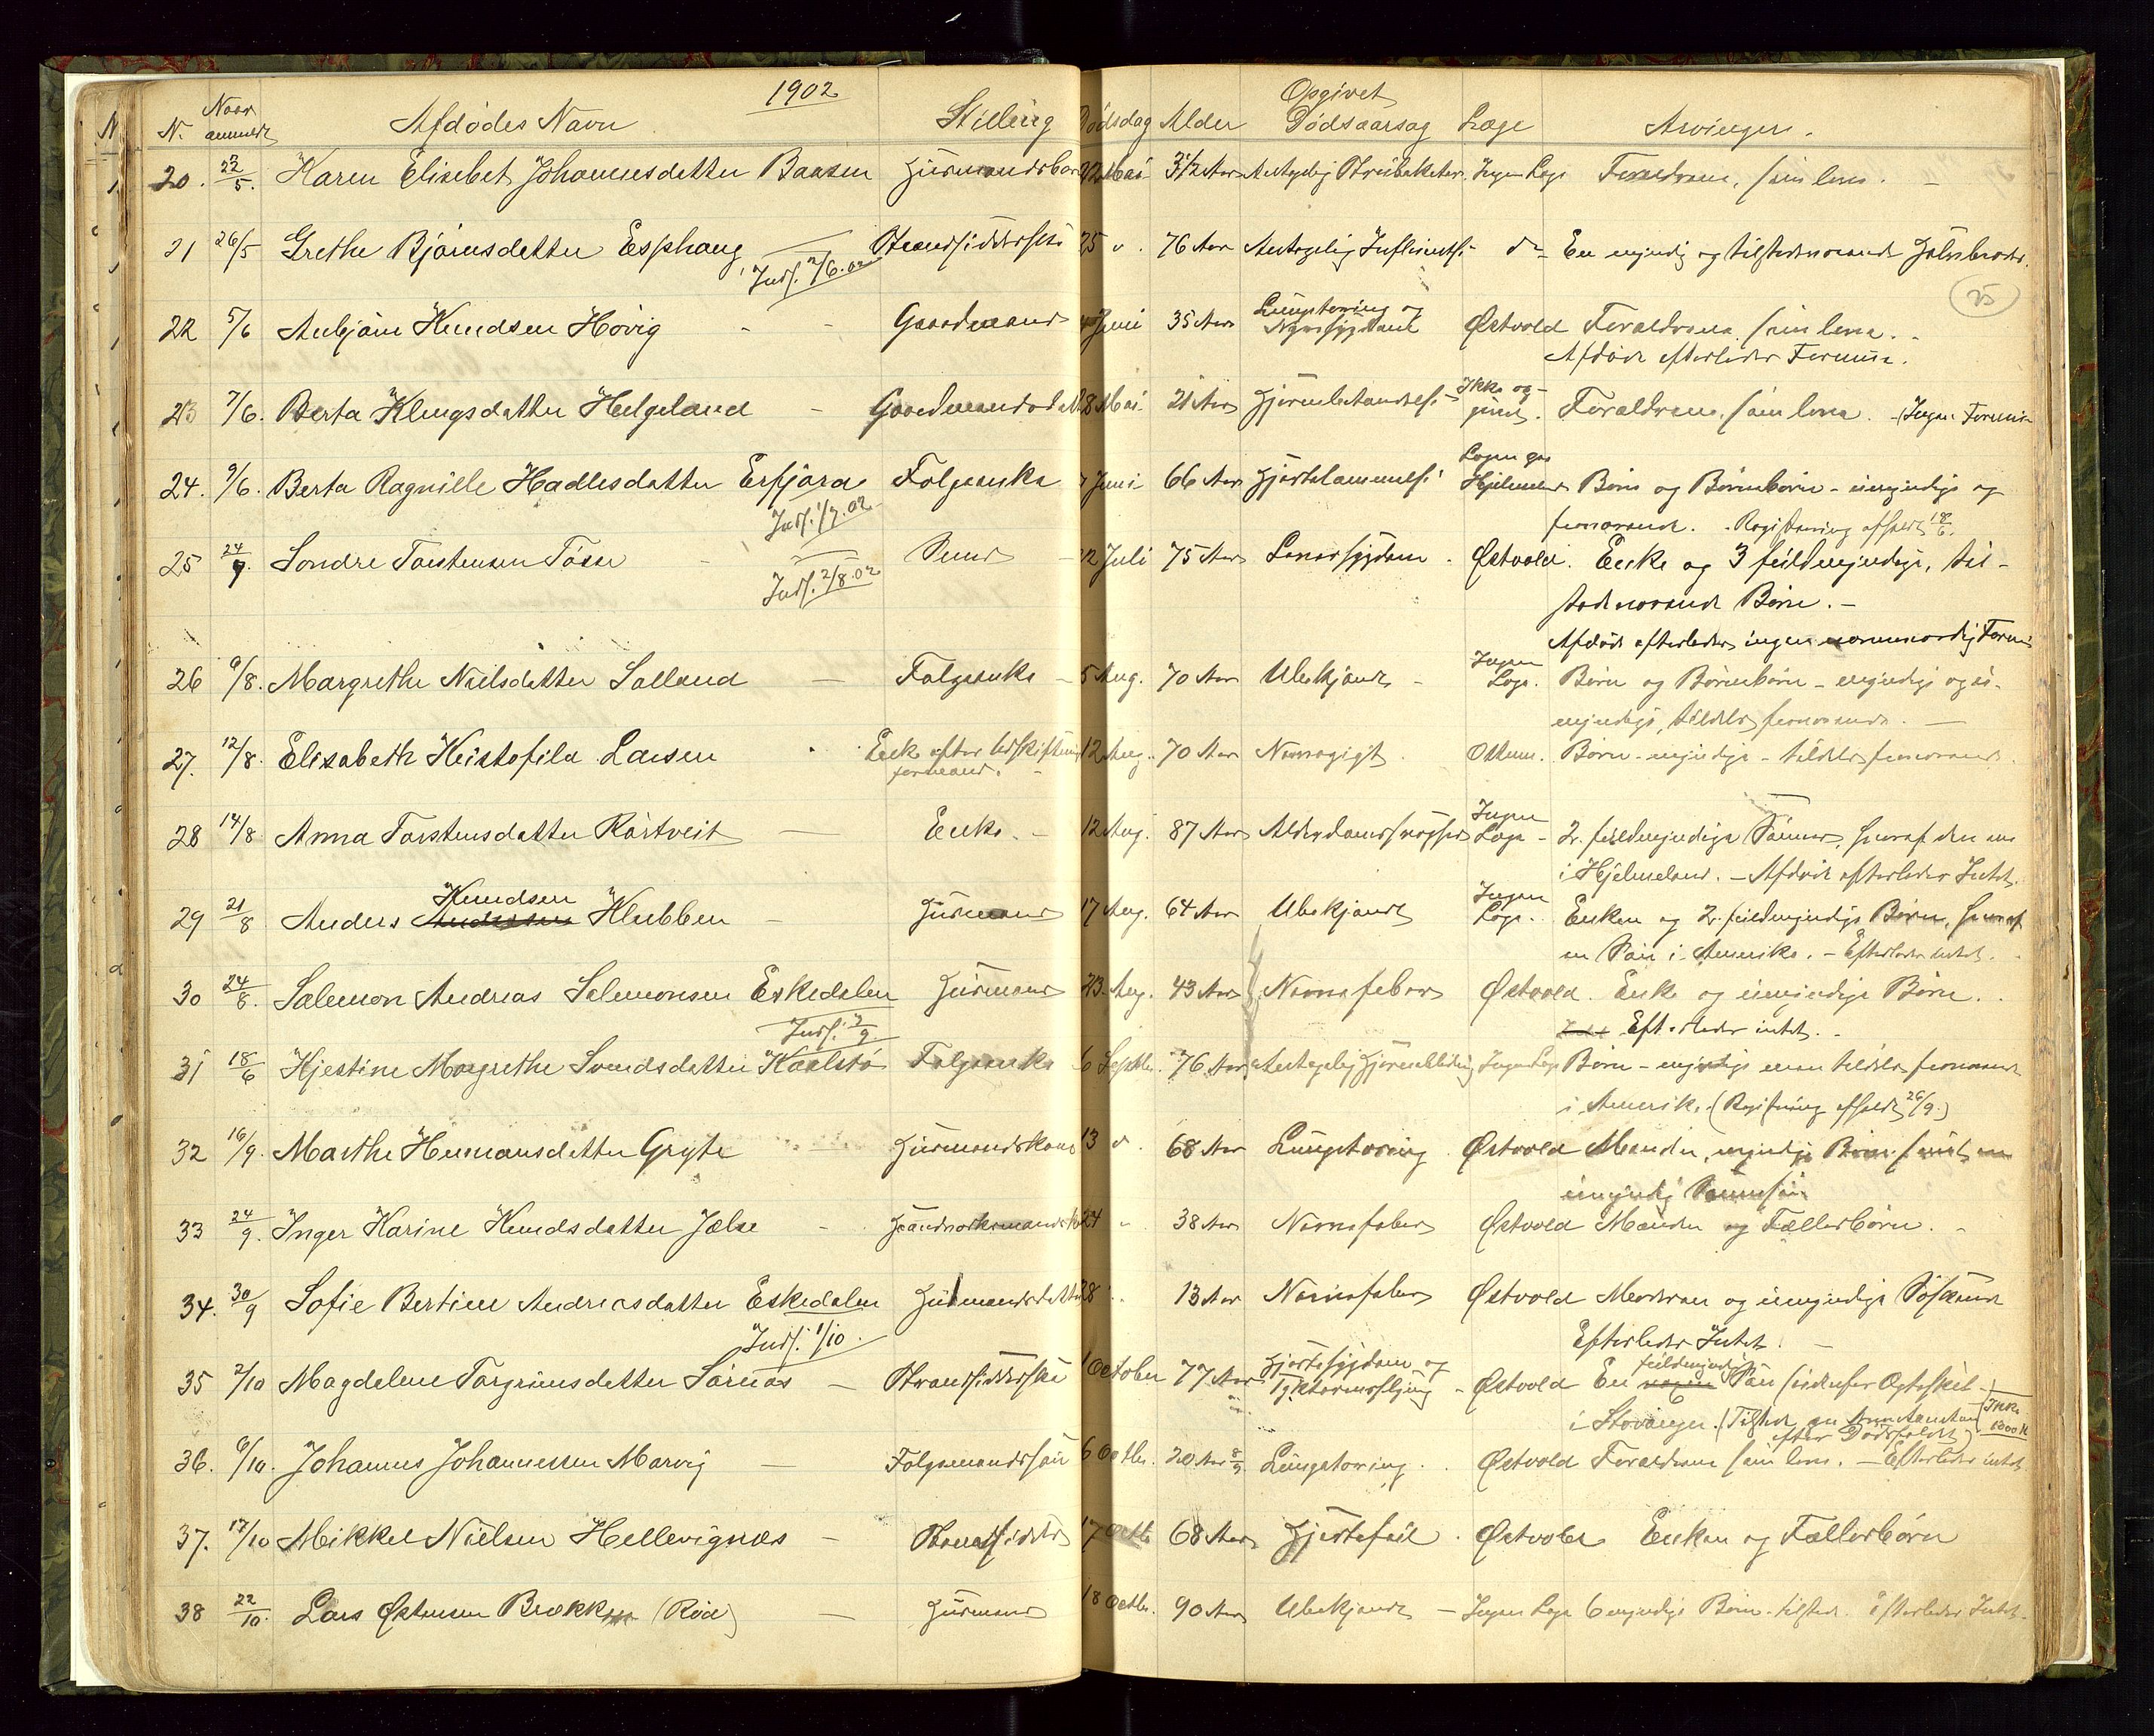 1902
N. Naar anmeldt Afdødes Navn Stilling Dødsdag Alder Opgivet Dødsaarsag Læge Arvinger.
20. 22/5. Karen Elisebet Johannesdatter Baasen Huusmandsbarn 22 Mai 3 1/2 Aar Antagelig Strubekatar. Ingen Læge Forældrene, som leve. -
21 26/5 Grethe Bjørnsdatter Esphaug Strandsidderske 25 " 76 Aar Antagelig Influentsi d° En myndig og tilstedeværende Halvbroder.
Indf. 2/6.02
25
22 5/6 Anbjørn Knudsen Høvig - - Gaardmand 4 Juni 35 Aar Lungetæring og Nyresygdom Østvold Forældrene, som leve.
Afdøde efterlader Formue.
23 7/6. Berta Klungsdatter Helgeland - Gaardmandsdatt 28 Mai 21 Aar Hjernebetændelse Ikke opgivet. Forældrene, som leve. - Ingen Formue
24. 9/6. Berta Ragnille Hadlesdatter Erfjord Folgeenke 7 Juni 66 Aar Hjertelammelse Lægen paa Hjelmeland Børn og Børnebørn - umyndige og
Indf. 1/7.02
fraværende. - Registrering afholdt 18/6.
25 24/7. Sondre Torstensen Tøsse - Smed - 22 Juli 75 Aar Leversygdom - Østvold. Enke og 3 fuldmyndige, til-
Indf. 2/8.02
stedeværende Børn. -
Afdøde efterlader ingen nævneværdig Formue
26 6/8. Margrethe Nielsdatter Salland - Folgeenke - 5 Aug. 70 Aar Ubekjendt - Ingen Læge. Børn og Børnebørn - myndige og u-
myndige, tildels fraværende. -
27. 12/8. Elisabeth Kristofila Larsen Enke efter Udskiftningsformand. - 12 Aug. 70 Aar Nervegigt Ottesen. Børn - myndige - tildels fraværende.
28 14/8 Anna Torstensdatter Rørtveit - Enke. - 12 Aug. 87 Aar Alderdomssvaghed Ingen Læge - 2. fuldmyndige Sønner, hvoraf den ene
i Hjelmeland. - Afdøde efterlader Intet.
29 21/8 Anders Andersen Knudsen Klubben - Huusmand 17 Aug. 64 Aar Ubekjendt Ingen Læge. Enken og 2. fuldmyndige Børn, hvoraf
en Søn i Amerika. - Efterlader intet.
30 24/8. Salemon Andreas Salemonsen Eskedalen Huusmand 23. Aug. 43 Aar Nervefeber Østvold. Enke og umyndige Børn.
Indf. 3/9
Efterlader intet. -
31 18/6 Kjestine Margrethe Svendsdatter Kaalstø Folgeenke 6 Septbr. 76 Aar Antagelig Hjerneblødning Ingen Læge Børn - myndige men tildels fraværende
i Amerika. (Registrering afholdt 26/9.)
32 16/9. Marthe Hermansdatter Gryte Huusmandskone 13 " 68 Aar Lungetæring. Østvold Manden, myndige Børn samt en
umyndig Sønnesøn
33 24/9. Inger Karine Knudsdatter Jælse - Haandverksmandsko 24 " 38 Aar Nervefeber Østvold Manden og Fællesbørn. -
34. 30/9 Sofie Bertine Andreasdatter Eskedalen Huusmandsdatter 28 " 13 Aar Nervefeber Østvold Moderen og umyndige Søskende
Indf. 1/10.
Efterlader Intet. -
35 2/10 Magdalene Torgrimsdatter Sørnæs - Strandsidderske 1 October 77 Aar Hjertesygdom og Tyktarmsslyng - Østvold En fuldmyndig Søn født udenfor Ægteskab -
i Stavanger.
36. 6/10. Johannes Johannessen Marvig - Folgemandssøn 6 Octbr. 20 Aar 8/9 Lungetæring. Østvold Forældrene som leve. - Efterlader intet
37. 17/10 Mikkel Nielsen Hellevignæs - Strandsidder 17 Octb. 68 Aar Hjertefeil. Østvold Enken og Fællesbørn
38 22/10. Lars Østensen Brække (Rød) - Huusmand 18 Octbr. 90 Aar Ubekjendt - Ingen Læge 6 myndige Børn tilstede. Efterlader Intet.